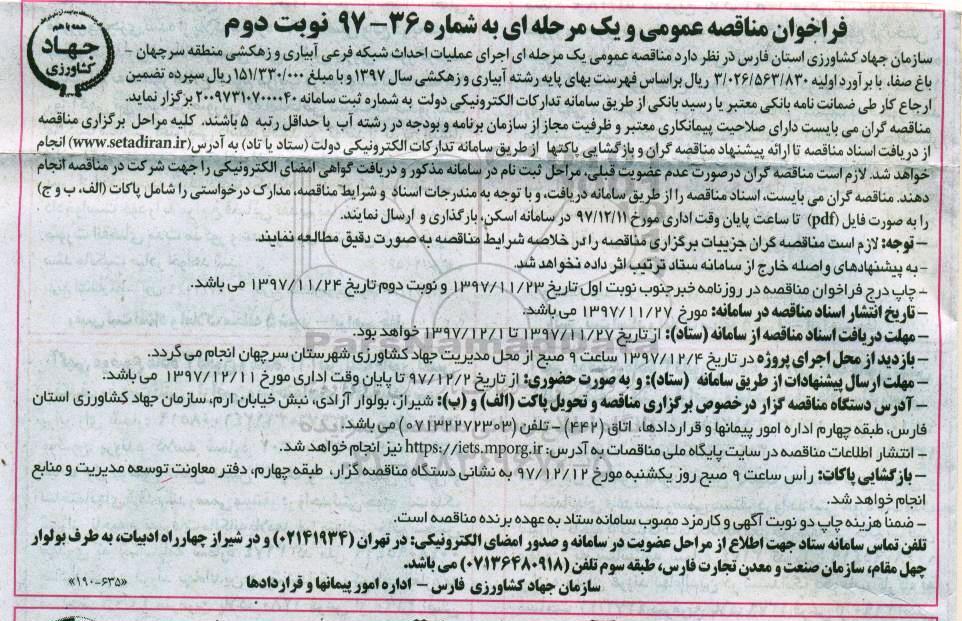 همه با هم
جهاد
کشاورزی
فراخوان مناقصه عمومی و یک مرحله ای به شماره ۳۶- ۹۷ نوبت دوم
سازمان جهاد کشاورزی استان فارس در نظر دارد مناقصه عمومی یک مرحله ای اجرای عملیات احداث شبکه فرعی آبیاری و زهکشی منطقه سرچهان -
باغ صفا، با برآورد اولیه ۳/۰۲۶/۵۶۳/۸۳۰ ریال براساس فهرست بهای پایه رشته آبیاری و زهکشی سال ۱۳۹۷ و با مبلغ ۱۵۱/۳۳۰/۰۰۰ ریال سپرده تضمین
ارجاع کار طی ضمانت نامه بانکی معتبر یا رسید بانکی از طریق سامانه تدارکات الکترونیکی دولت به شماره ثبت سامانه ۲۰۰۹۷۳۱۰۷۰۰۰۰۴۰ برگزار نماید.
مناقصه گران می بایست دارای صلاحیت پیمانکاری معتبر و ظرفیت مجاز از سازمان برنامه و بودجه در رشته آب با حداقل رتبه ۵ باشند. کلیه مراحل برگزاری مناقصه
از دریافت اسناد مناقصه تا ارائه پیشنهاد مناقصه گران و بازگشایی پاکتها از طریق سامانه تدارکات الکترونیکی دولت (ستاد یا تاد) به آدرس(www.setadiran.ir) انجام
خواهد شد. لازم است مناقصه گران درصورت عدم عضویت قبلی، مراحل ثبت نام در سامانه مذکور و دریافت گواهی امضای الکترونیکی را جهت شرکت در مناقصه انجام
دهند. مناقصه گران می بایست، اسناد مناقصه را از طریق سامانه دریافت، و با توجه به مندرجات اسناد و شرایط مناقصه، مدارک درخواستی را شامل پاکات (الف، ب و ج)
را به صورت فایل (pdf) تا ساعت پایان وقت اداری مورخ ۹۷/۱۲/۱۱ در سامانه اسکن، بارگذاری و ارسال نمایند.
- توجه: لازم است مناقصه گران جزییات برگزاری مناقصه را در خلاصه شرایط مناقصه به صورت دقیق مطالعه نمایند.
- به پیشنهادهای واصله خارج از سامانه ستاد ترتیب اثر داده نخواهد شد.
- چاپ درج فراخوان مناقصه در روزنامه خبرجنوب نوبت اول تاریخ ۱۳۹۷/۱۱/۲۳ و نوبت دوم تاریخ ۱۳۹۷/۱۱/۲۴ می باشد.
- تاریخ انتشار اسناد مناقصه در سامانه: مورخ ۱۳۹۷/۱۱/۲۷ می باشد.
- مهلت دریافت اسناد مناقصه از سامانه (ستاد): از تاریخ ۱۳۹۷/۱۱/۲۷ تا ۱۳۹۷/۱۲/۱ خواهد بود.
- بازدید از محل اجرای پروژه در تاریخ ۱۳۹۷/۱۲/۴ ساعت ۹ صبح از محل مدیریت جهاد کشاورزی شهرستان سرچهان انجام می گردد.
- مهلت ارسال پیشنهادات از طریق سامانه (ستاد): و به صورت حضوری: از تاریخ ۹۷/۱۲/۲ تا پایان وقت اداری مورخ ۱۳۹۷/۱۲/۱۱ می باشد.
- آدرس دستگاه مناقصه گزار در خصوص برگزاری مناقصه و تحویل پاکت (الف) و (ب): شیراز، بولوار آزادی، نبش خیابان ارم، سازمان جهاد کشاورزی استان
فارس، طبقه چهارم اداره امور پیمانها و قراردادها، اتاق (۴۴۲) - تلفن (۰۷۱۳۲۲۷۲۳۰۳) می باشد.
- انتشار اطلاعات مناقصه در سایت پایگاه ملی مناقصات به آدرس: https://iets.mporg.ir نیز انجام خواهد شد.
- بازگشایی پاکات: رأس ساعت ۹ صبح روز یکشنبه مورخ ۹۷/۱۲/۱۲ به نشانی دستگاه مناقصه گزار، طبقه چهارم، دفتر معاونت توسعه مدیریت و منابع
انجام خواهد شد.
- ضمنا هزینه چاپ دو نوبت آگهی و کارمزد مصوب سامانه ستاد به عهده برنده مناقصه است.
تلفن تماس سامانه ستاد جهت اطلاع از مراحل عضویت در سامانه و صدور امضای الکترونیکی: در تهران (۰۲۱۴۱۹۳۴) و در شیراز چهارراه ادبیات، به طرف بولوار
چهل مقام، سازمان صنعت و معدن تجارت فارس، طبقه سوم تلفن (۰۷۱۳۶۴۸۰۹۱۸) می باشد.
سازمان جهاد کشاورزی فارس - اداره امور پیمانها و قراردادها
«۱۹۰-۶۳۵»